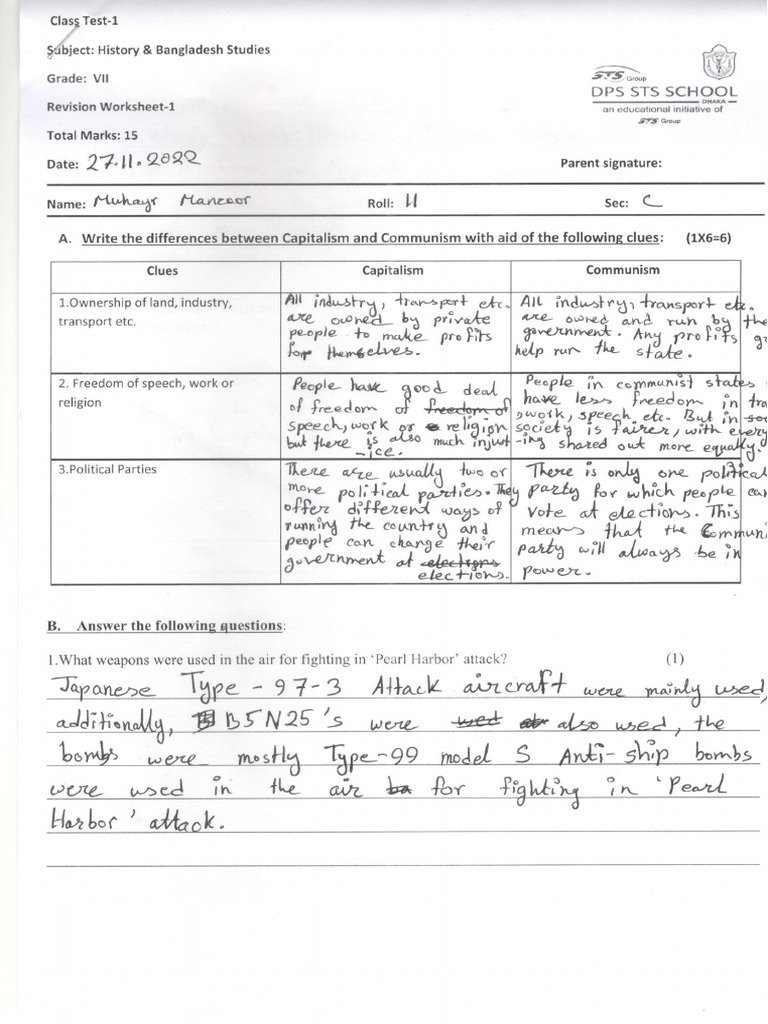 Class Test-1
Subject: History & Bangladesh Studies
Grade: VII
STS Group
DPS STS SCHOOL
DHAKA
an educational initiative of
STS Group
Revision Worksheet-1
Total Marks: 15
Date: 27.11.2022 Parent signature:
Name: Muhayr Manzoor Roll: 11 Sec: C
A. Write the differences between Capitalism and Communism with aid of the following clues: (1X6=6)
Clues Capitalism Communism
1.Ownership of land, industry,
transport etc.
All industry, transport etc.
are owned by private
people to make profits
for themselves.
All industry, transport etc.
are owned and run by the
government. Any profits g
help run the state.
2. Freedom of speech, work or
religion
People have good deal
of freedom of freedom of
speech, work or religion
but there is also much injust
-ice.
People in communist states
have less freedom in tra
work, speech, etc. But in so
society is fairer, with every
-ing shared out more equally.
3.Political Parties
There are usually two or
more political parties. They
offer different ways of
running the country and
people can change their
government at elections
elections.
There is only one political
party for which people can
vote at elections. This
means that the Communi
party will always be in
power.
B. Answer the following questions:
1.What weapons were used in the air for fighting in 'Pearl Harbor' attack? (1)
Japanese Type - 97-3 Attack aircraft were mainly used,
additionally, B5N25's were used also used, the
bombs were mostly Type-99 model S Anti-ship bombs
were used in the air for fighting in 'Pearl
Harbor' attack.